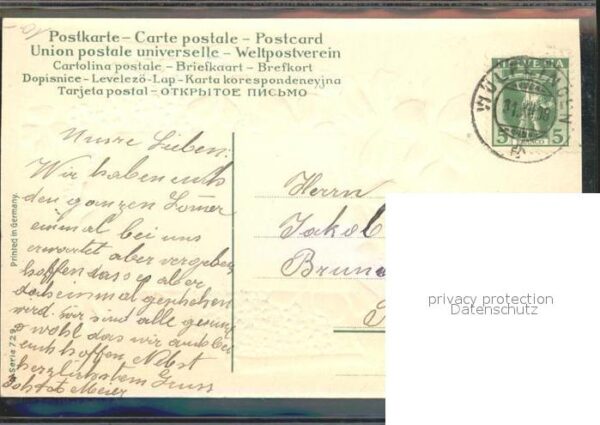 Postkarte – Carte postale – Postcard
Union postale universelle – Weltpostverein
Cartolina postale – Briefkaart – Brefkort
Dopisnice – Levelező-Lap – Karta korespondeneyjna
Tarjeta postal – ОТКРЫТОЕ ПИСЬМО
HELVETIA
WÜLFLINGEN
5 FRANCO 5
Unsre Lieben:
Wir haben euch
den ganzen Somer
einmal bei uns
erwartet aber vergeben
hoffen dass es aber
doch einmal geschehen
wird. wir sind alle gesund
wohl das wir auch bei
euch hoffen Nebst
herzlichstem Gruss
Meier
Herrn
Jakob
Brun
Printed in Germany.
Serie 729
privacy protection
Datenschutz